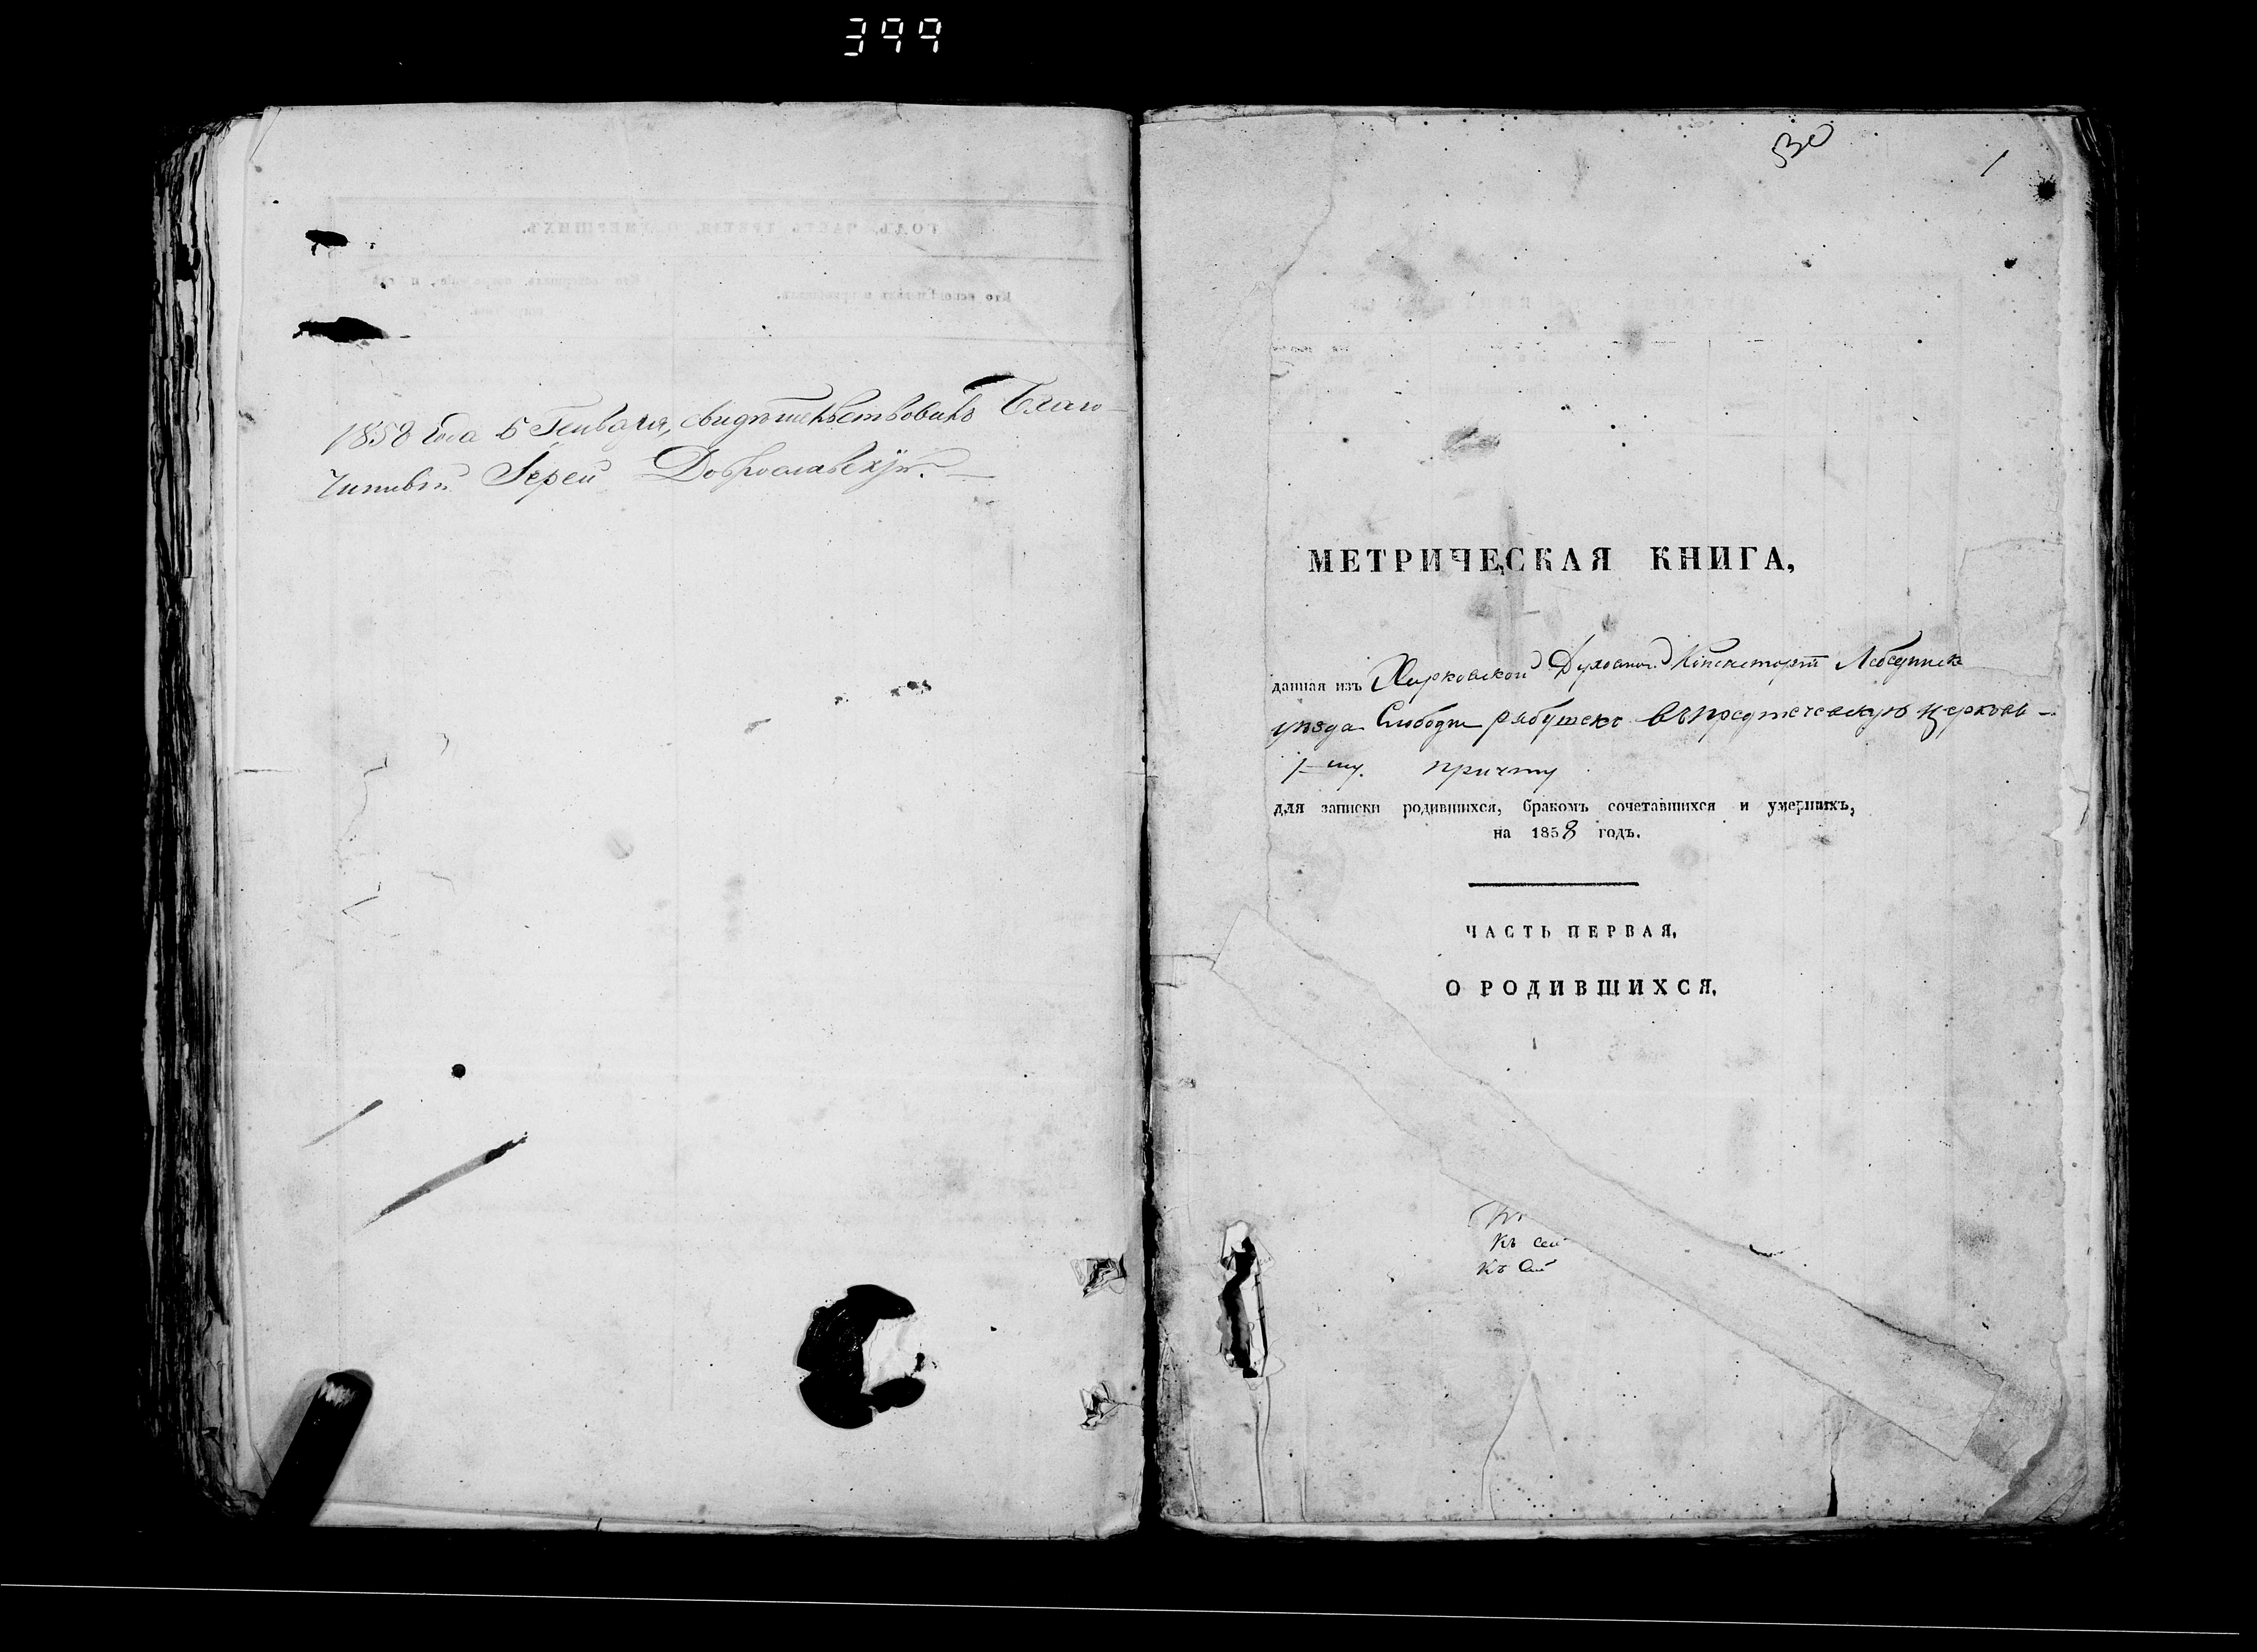 399
1858 года 5 Генваря, свидѣтельствовалъ Благо-
чинный Іерей Доброславскій.
530
1
МЕТРИЧЕСКАЯ КНИГА,
данная изъ Харковской Духовной Консисторіи Лебединск
уѣзда Слободы рябушекъ въ предтечевскую церковь -
1-му. причту
для записки родившихся, бракомъ сочетавшихся и умершихъ,
на 1858 годъ.
ЧАСТЬ ПЕРВАЯ,
О РОДИВШИХСЯ,
Къ
Къ Сей